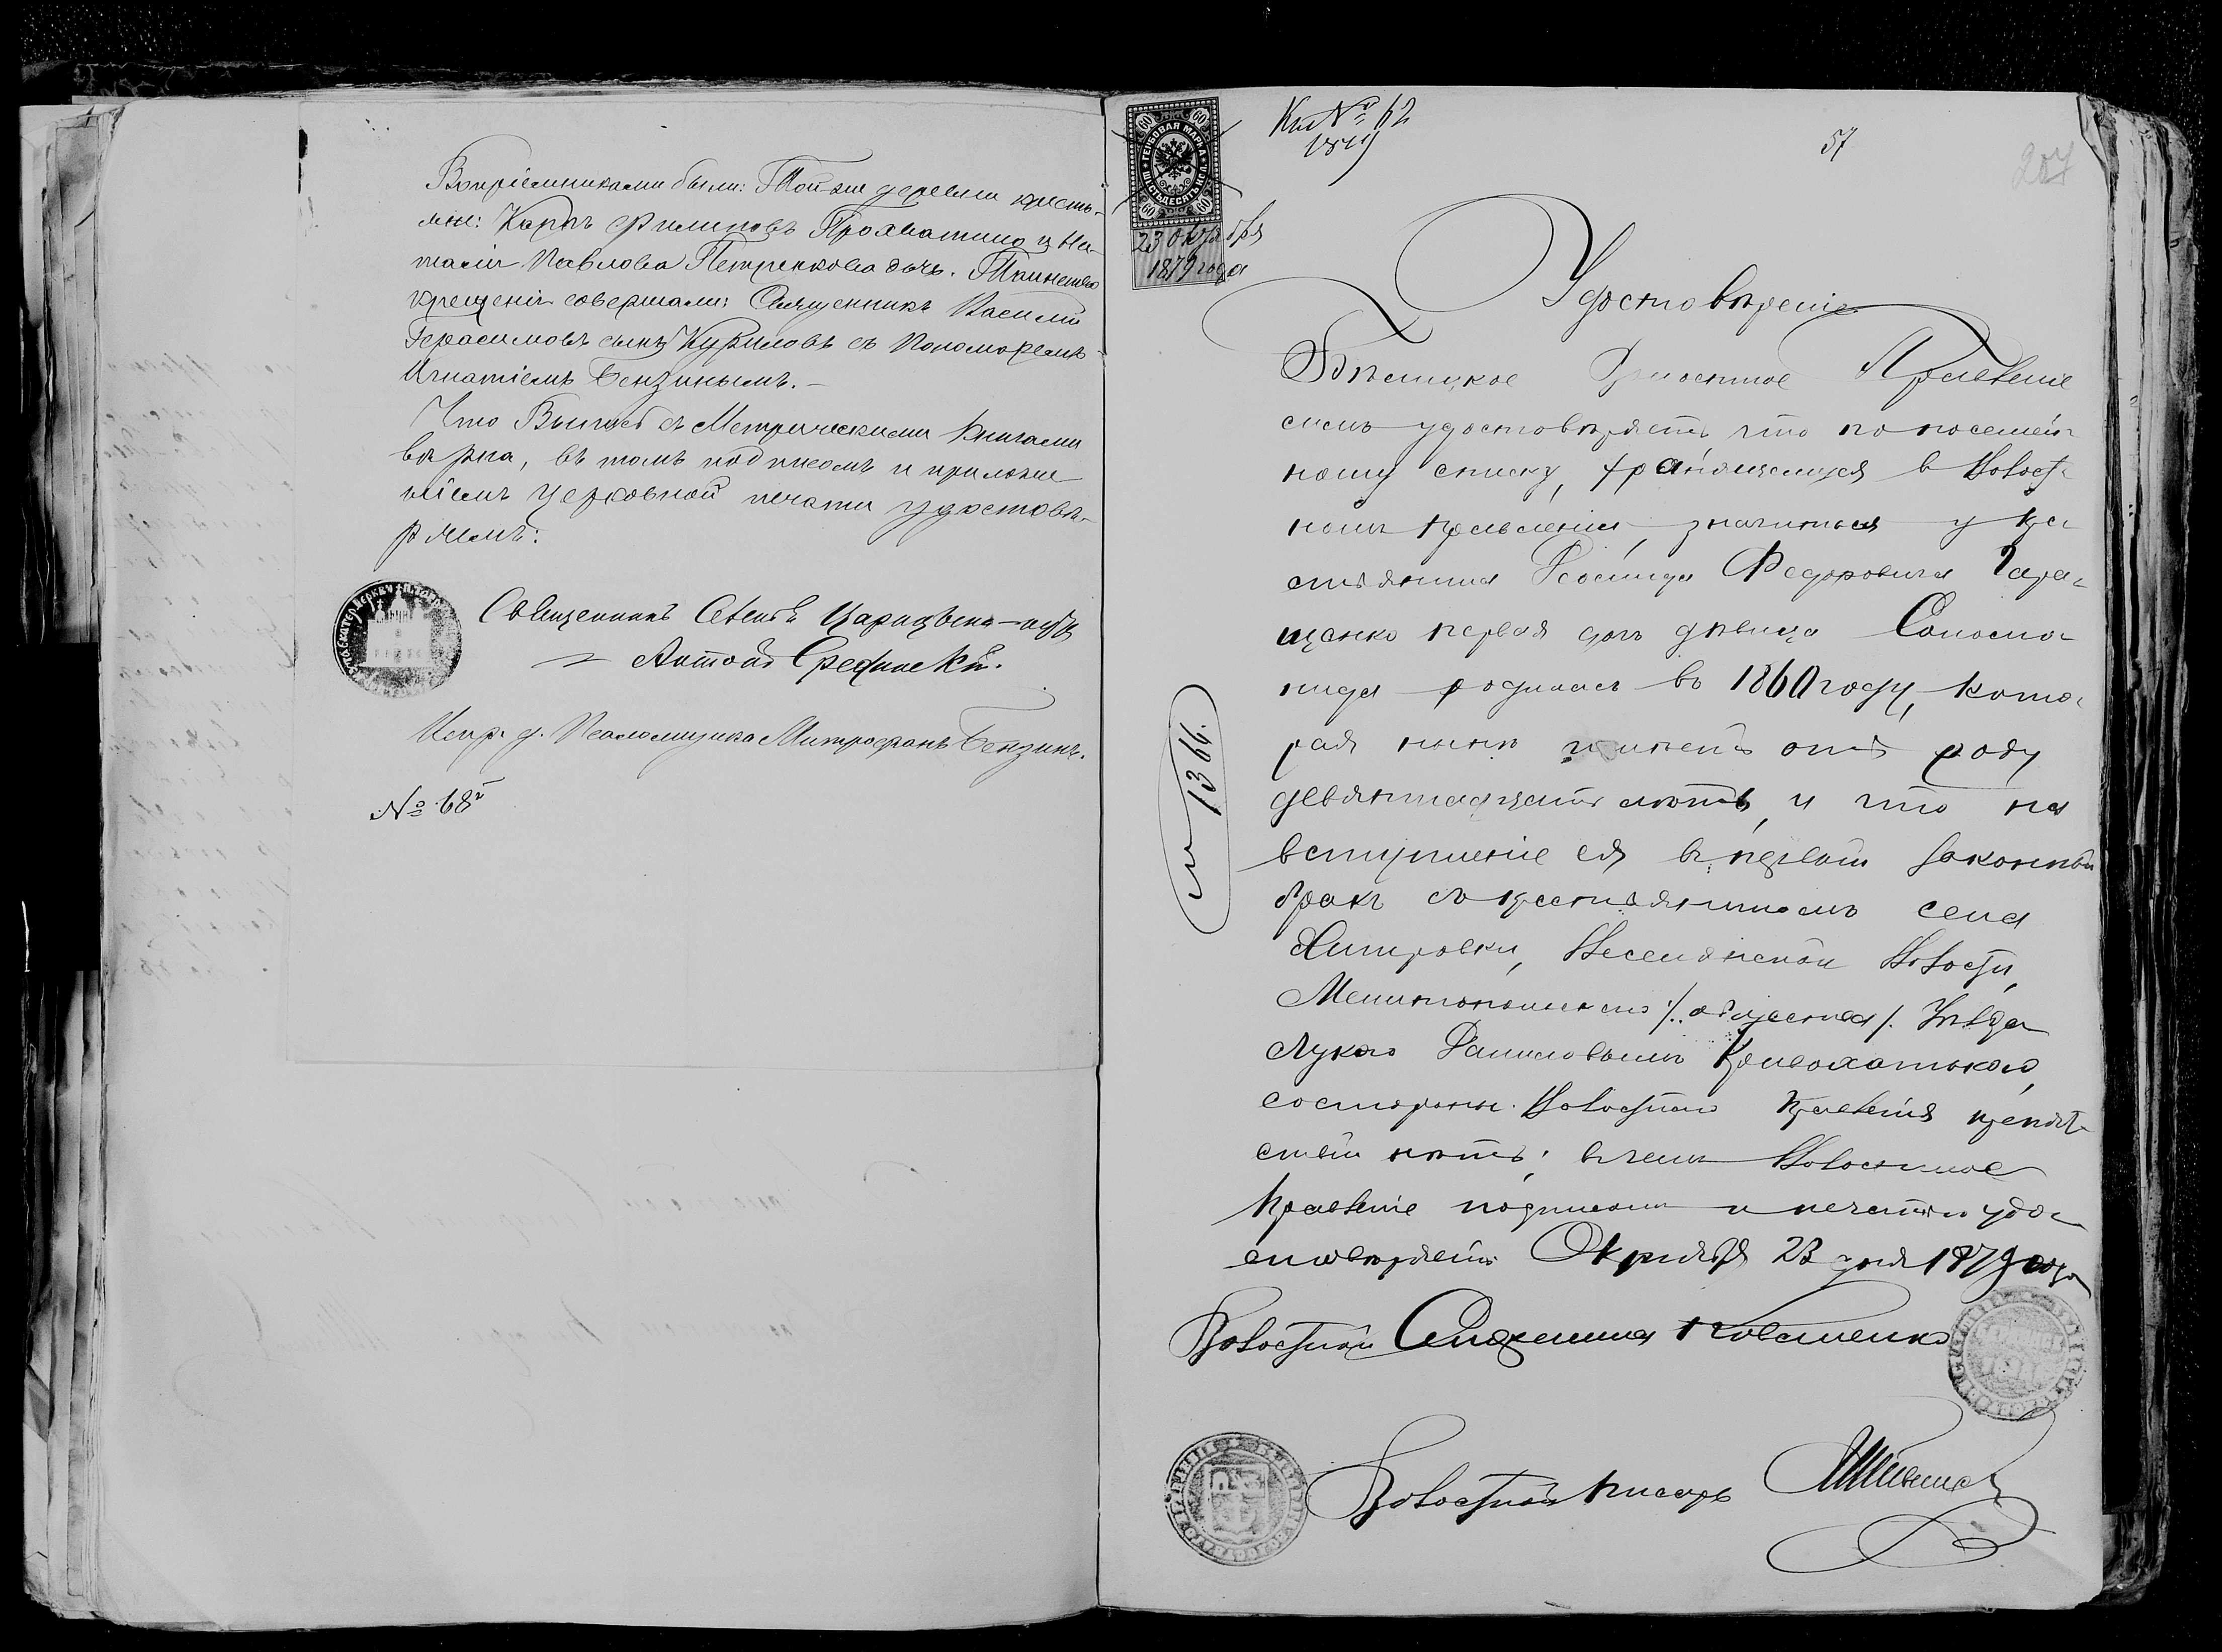 Воспріемниками были: Той же деревни кресть-
яне: Карпъ Филиповъ Прохватило и На-
талія Павлова Петренкова дочь. Таинство
крещенія совершали: Священникъ Василій
Герасимовъ сынъ Куриловъ съ Пономаремъ
Игнатіемъ Бензинымъ.—
Что Выпись съ Метрическими Книгами
вѣрна, въ томъ подписомъ и приложе
ніемъ церковной печати удостовѣ-
ряемъ:
Священникъ
Антоній
Испр. д. Псаломщика Митрофанъ Бензинъ.
№ 68
Кн № 62
1879
57
207
ГЕРБОВАЯ МАРКА
ШЕСТЬДЕСЯТЪ КОП
60 60
60 60
23 Октября
1879 года
Удостовѣреніе
Волостное Правленіе
симъ удостовѣряетъ что по посемей-
ному списку, хранящемуся в Волост-
номъ правленіи, значиться у кре
стьянина Леонида Федоровича Гара-
щенко первая дочь дѣвица Соломо-
нида родилась въ 1860 году, кото-
рая нынѣ имѣетъ отъ роду
девятнадцать лѣтъ, и что на
вступленіе ея в первый законный
бракъ съ крестьяниномъ села
Волости,
/:общества/: Уѣзда
Лукою Даниловымъ Кривохатькою,
состороны Волостнаго Правленія препят-
ствій нѣтъ; в чемъ Волостное
Правленіе подписомъ и печатью удо-
стовѣряетъ Октября 23 дня 1879 года
№ 1366.
Волостной Старшина
Волостной писарь